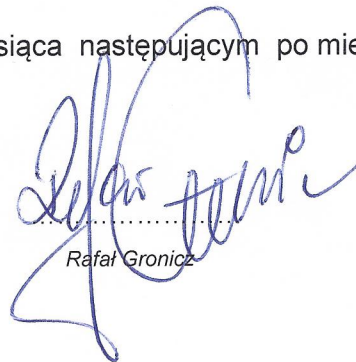 siąca następującym po mie
Rafał Gronicz